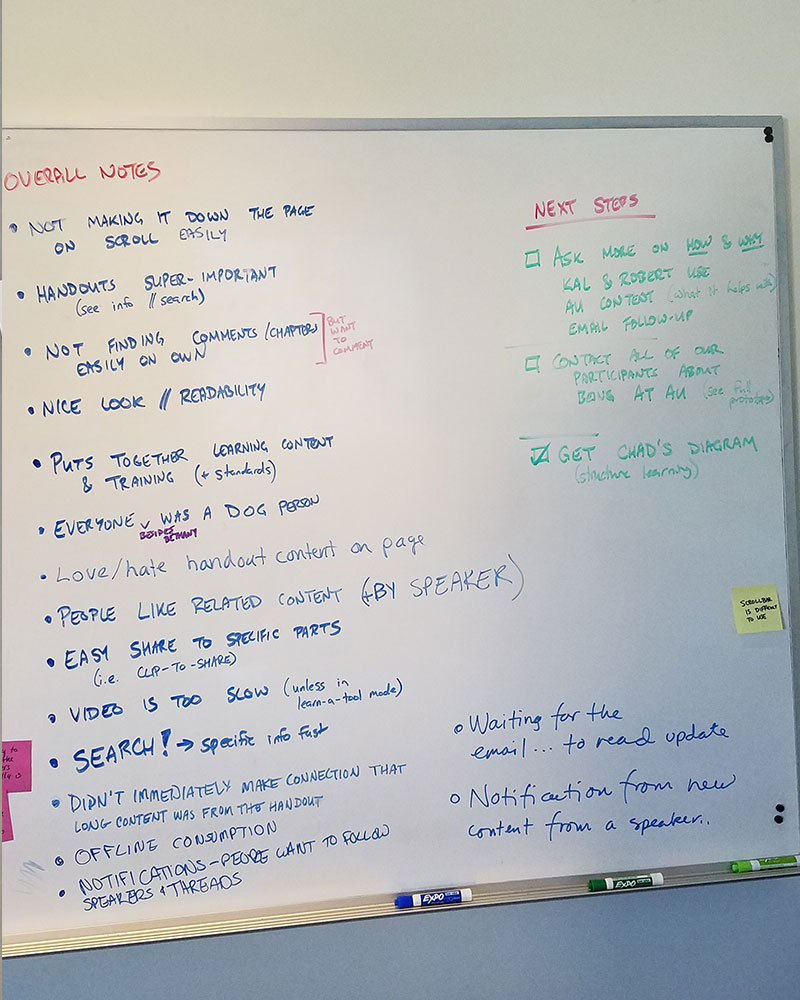 OVERALL NOTES
• NOT MAKING IT DOWN THE PAGE
ON SCROLL EASILY
• HANDOUTS SUPER-IMPORTANT
(see info // search)
• NOT FINDING COMMENTS/CHAPTERS
EASILY ON OWN
BUT
WANT
TO
COMMENT
• NICE LOOK // READABILITY
• PUTS TOGETHER LEARNING CONTENT
& TRAINING (+ standards)
• EVERYONE ✓ WAS A DOG PERSON
BESIDES
BETHANY
• Love/hate handout content on page
• PEOPLE LIKE RELATED CONTENT (+BY SPEAKER)
• EASY SHARE TO SPECIFIC PARTS
(i.e. CLIP-TO-SHARE)
• VIDEO IS TOO SLOW (unless in
learn-a-tool mode)
• SEARCH! → specific info fast
• DIDN'T IMMEDIATELY MAKE CONNECTION THAT
LONG CONTENT WAS FROM THE HANDOUT
• OFFLINE CONSUMPTION
• NOTIFICATIONS - PEOPLE WANT TO FOLLOW
SPEAKERS & THREADS
NEXT STEPS
☐ ASK MORE ON HOW & WHY
KAL & ROBERT USE
AU CONTENT (what it helps with)
EMAIL FOLLOW-UP
☐ CONTACT ALL OF OUR
PARTICIPANTS ABOUT
BEING AT AU (see full
prototype)
☑ GET CHAD'S DIAGRAM
(structure learning)
SCROLLBAR
IS DIFFICULT
TO USE
○ Waiting for the
email... to read update
○ Notification from new
content from a speaker..
to
the
EXPO
EXPO